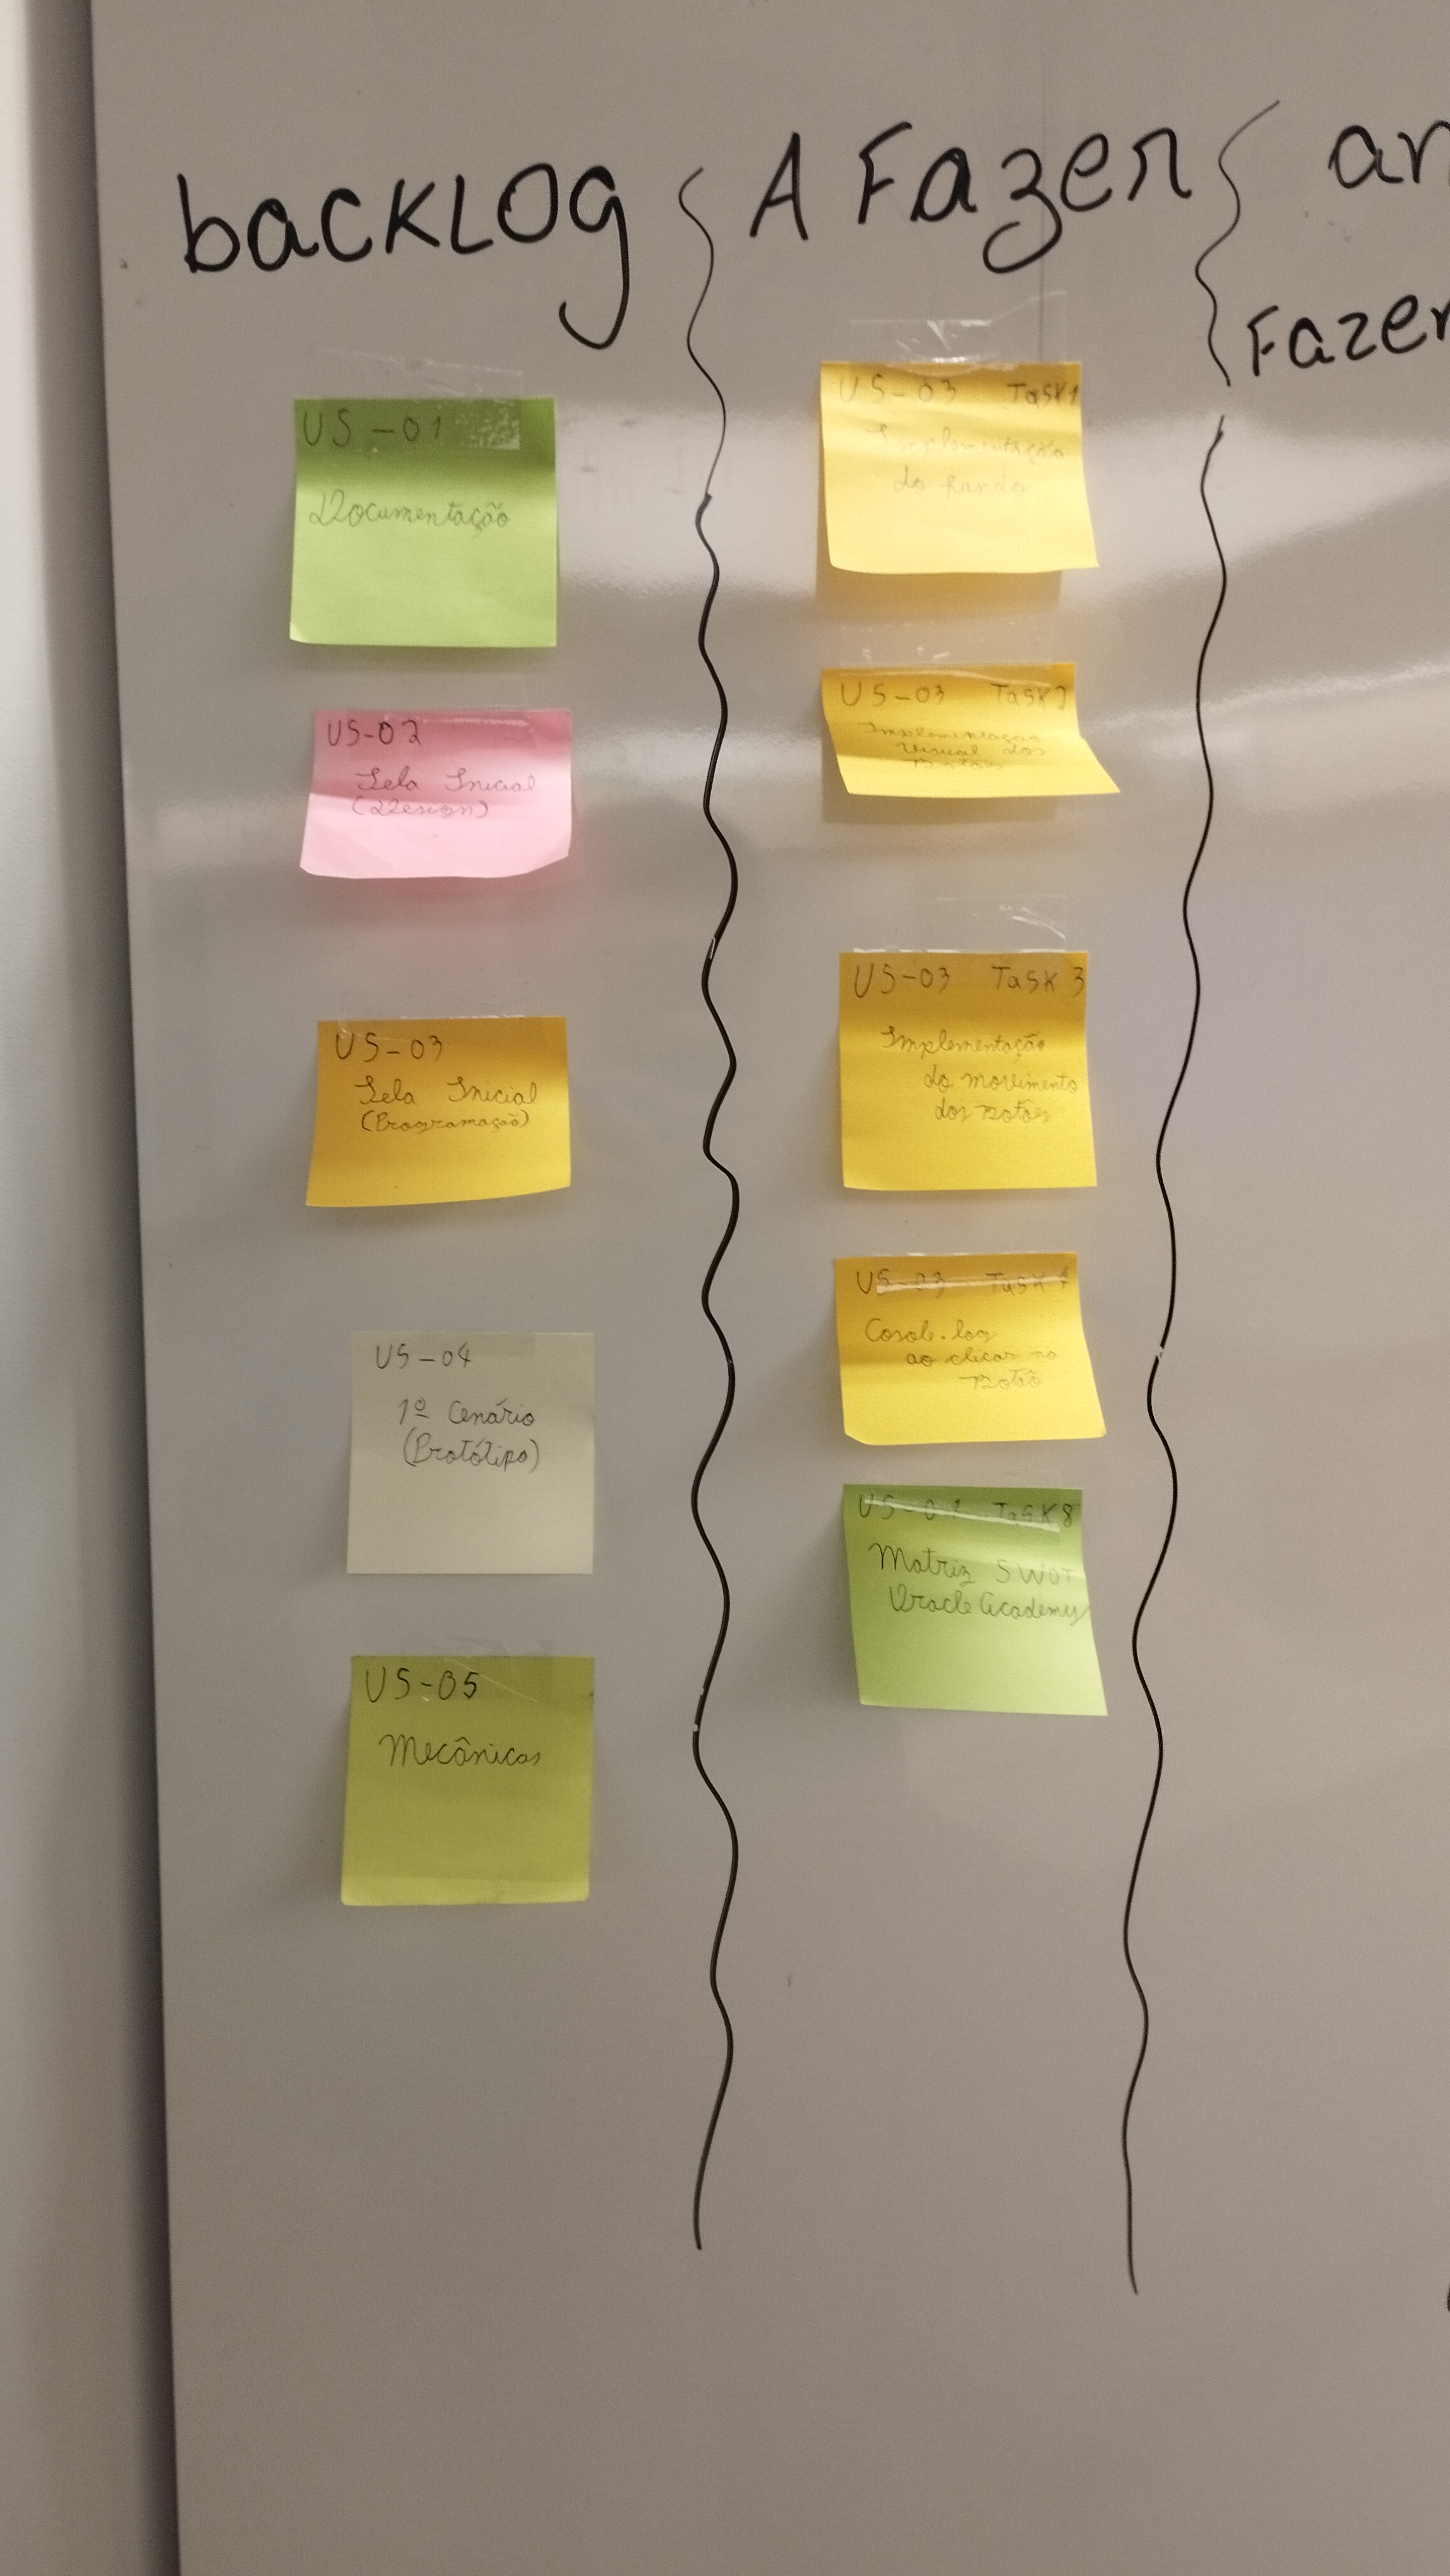 backLOG
US-01
Documentação
US-02
Tela Inicial
(Design)
US-03
Tela Inicial
(Programação)
US-04
1º Cenário
(Protótipo)
US-05
Mecânicas
A Fazer
US-03 Task1
Implementação
do fundo
US-03 Task2
Implementação
Visual dos
Botões
US-03 Task 3
Implementação
do movimento
dos Botões
US-03 Task 4
Cosole.log
ao clicar no
Botão
US-01 Task8
Matriz SWOT
Oracle Academy
Fazer